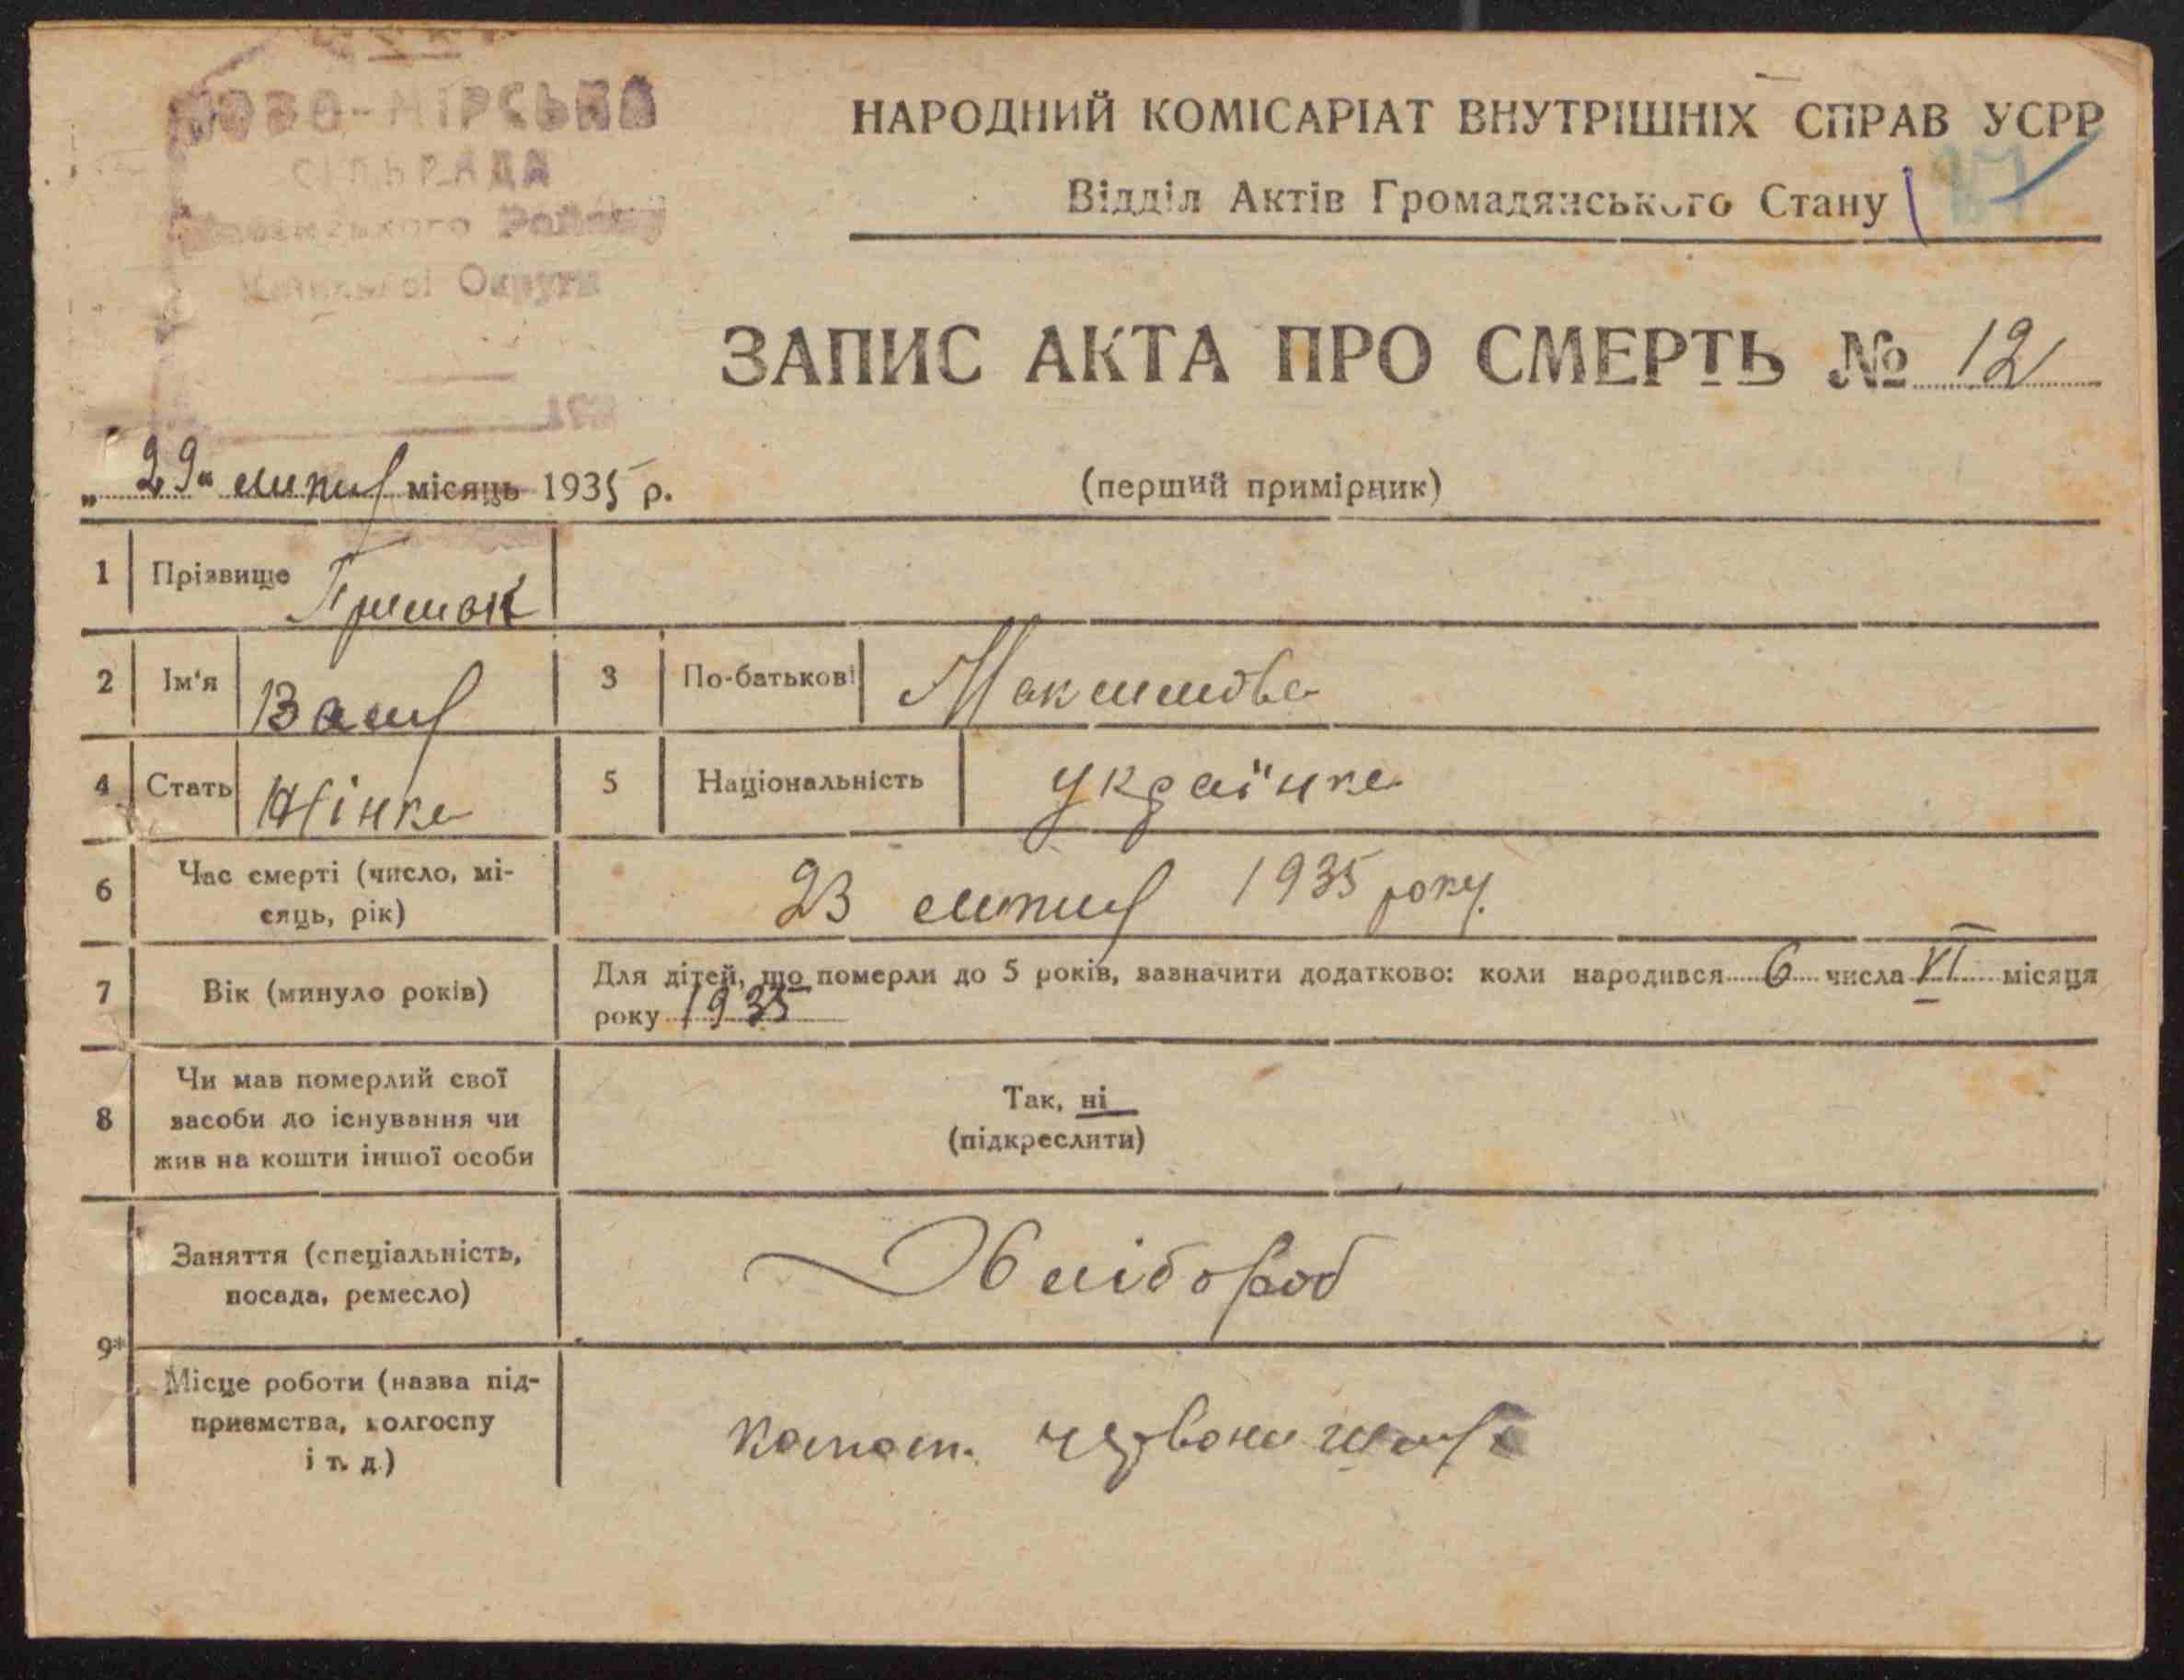 СІЛЬРАДА
Району
Округи
НАРОДНИЙ КОМІСАРІАТ ВНУТРІШНІХ СПРАВ УСРР
Відділ Актів Громадянського Стану
ЗАПИС АКТА ПРО СМЕРТЬ № 12
„ 29 “ липня місяць 1935 р.
(перший примірник)
1 Прізвище
2 Ім'я 3 По-батькові Максимовна
4 Стать Жінка 5 Національність українка
6 Час смерті (число, мі-
сяць, рік) 23 липня 1935 року.
7 Вік (минуло років) Для дітей, що померли до 5 років, зазначити додатково: коли народився 6 числа VI місяця
року 1935
8 Чи мав померлий свої
засоби до існування чи
жив на кошти іншої особи
Так, ні
(підкреслити)
9* Заняття (спеціальність,
посада, ремесло) Хлібороб
Місце роботи (назва під-
приємства, колгоспу
і т. д.)